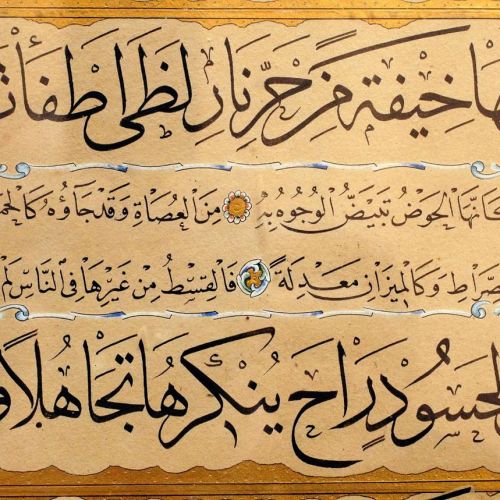 ـهَا خِيفَةً مِنْ حَرِّ نَارِ لَظَى اَطْفَأْتَ
ـاَنَّهَا الحَوْضُ تَبْيَضُّ الوُجُوهُ بِهِ مِنَ العُصَاةِ وَقَدْ جَاؤُهُ كَالحُمَـ
ـصِّرَاطِ وَكَالمِيزَانِ مَعْدِلَةً فَالقِسْطُ مِنْ غَيْرِهَا فِي النَّاسِ لَمْ
لِحَسُودٍ رَاحَ يُنْكِرُهَا تَجَاهُلًا وَ